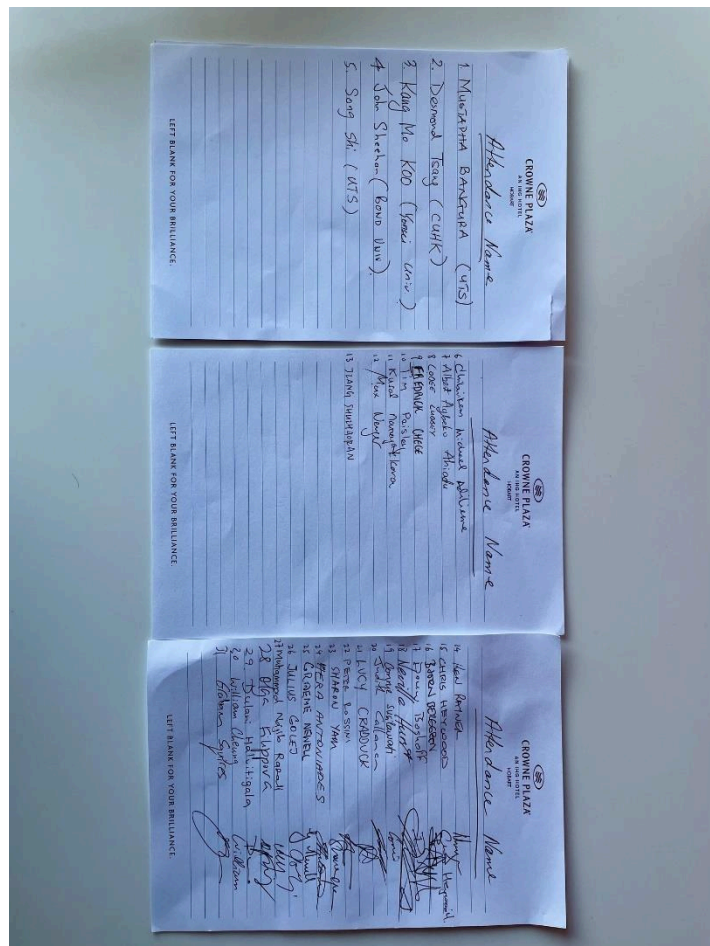 CROWNE PLAZA
AN IHG HOTEL
HOBART
Attendance Name
1. MUSTAPHA BANGURA (UTS)
2. Desmond Tsang (CUHK)
3. Kang Mo KOO (Yonsei Univ)
4 John Sheehan (BOND UNIV)
5. Song Shi (UTS)
LEFT BLANK FOR YOUR BRILLIANCE.
CROWNE PLAZA
AN IHG HOTEL
HOBART
Attendance Name
6 Michael
7 Albert Agbeko Ahiadu
8
9 FREDRICK CHEGE
10 Tim Paisley
11 Kusal
12 Max
13 JIANG
LEFT BLANK FOR YOUR BRILLIANCE.
CROWNE PLAZA
AN IHG HOTEL
HOBART
Attendance Name
14 KEN RAYNER
15 CHRIS HEYWOOD
16 BJORN BERGGREN
17 Douw Boshoff
18 Neville Hurst
19 Connie Susilawati
20 Judith Callanan
21 LUCY CRADDUCK
22 PETER ROSSINI
23 SHARON YAM
24 HERA ANTONIADES
25 GRAEME NEWELL
26 JULIUS GOLEJ
27 Muhammad Najib Razali
28 Olga Filippova
29 Dulani Halvitigala
30 William Cheung William
31 Graham Squires
LEFT BLANK FOR YOUR BRILLIANCE.